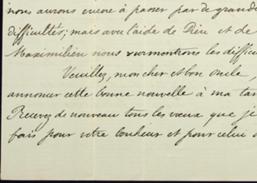 nous aurons encore à passer par de grande
difficultés; mais avec l'aide de Dieu et de
Maximilien nous surmonterons les diffic
Veuillez, mon cher et bon oncle,
annoncer cette bonne nouvelle à ma tan
Recevez de nouveau tous les vœux que je
fais pour votre bonheur et pour celui d